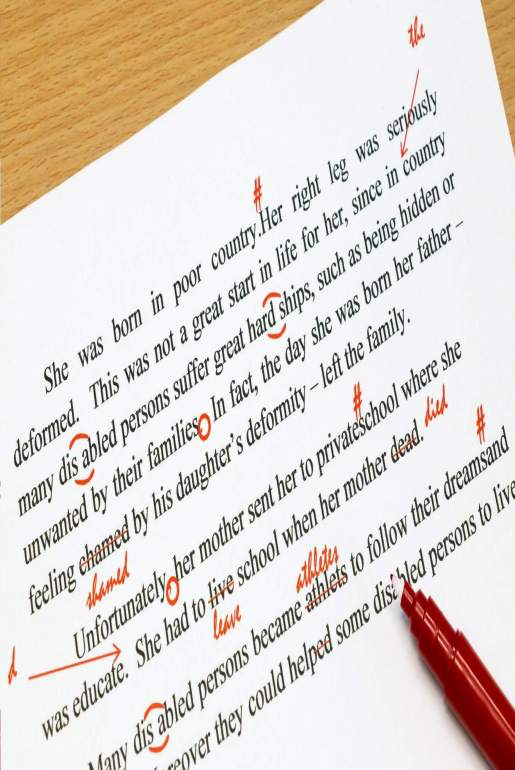 the
#
She was born in poor country.Her right leg was seriously
deformed. This was not a great start in life for her, since in country
many dis abled persons suffer great hard ships, such as being hidden or
unwanted by their families. In fact, the day she was born her father –
feeling chamed by his daughter's deformity – left the family.
shamed
#
Unfortunately, her mother sent her to privateschool where she
died
d
was educate. She had to live school when her mother dead.
leave
athletes
#
Many dis abled persons became athlets to follow their dreamsand
they could helped some disabled persons to live